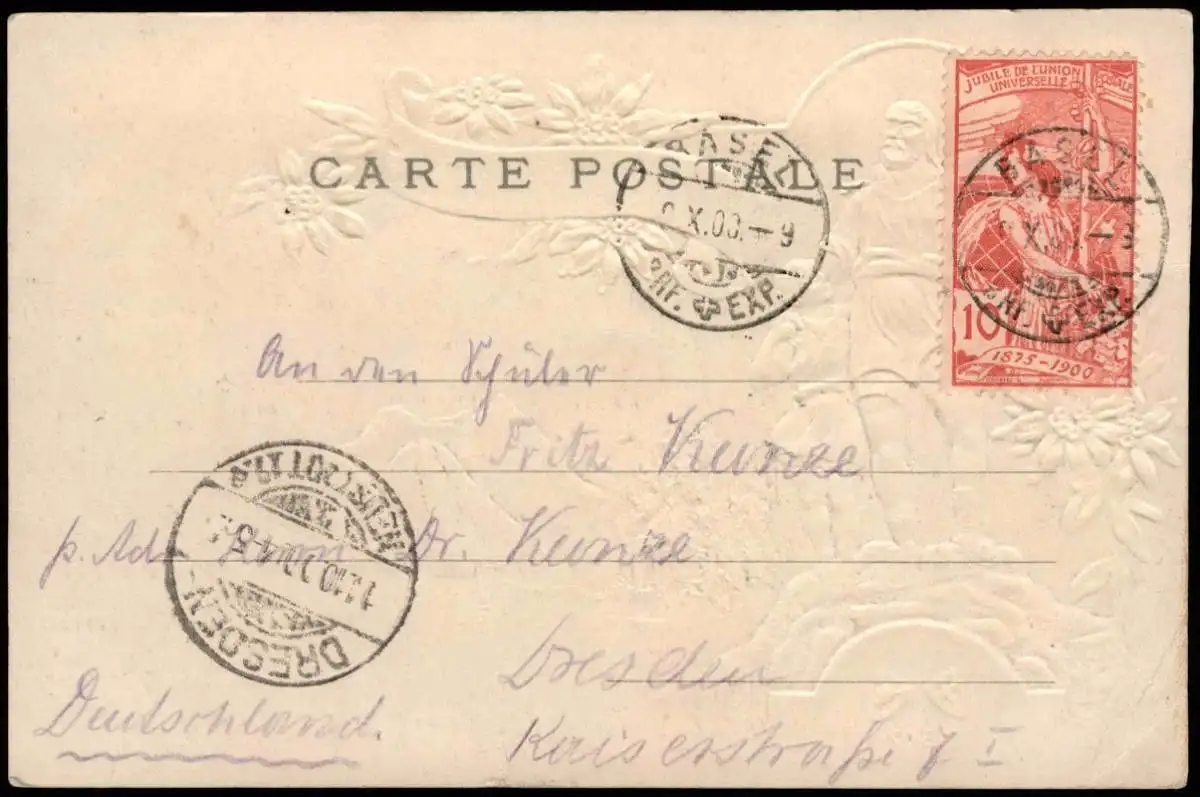 JUBILÉ DE L'UNION
UNIVERSELLE POSTALE
CARTE POSTALE
BASEL
X.00.-9
BRF. EXP.
BASEL
X.00.-9
BRF. EXP.
10
1875-1900
An den Schüler
Fritz Kunze
p. Adr. Herrn Dr. Kunze
Dresden
Kaiserstraße 7 I
Deutschland.
DRESDEN-
NEUST.